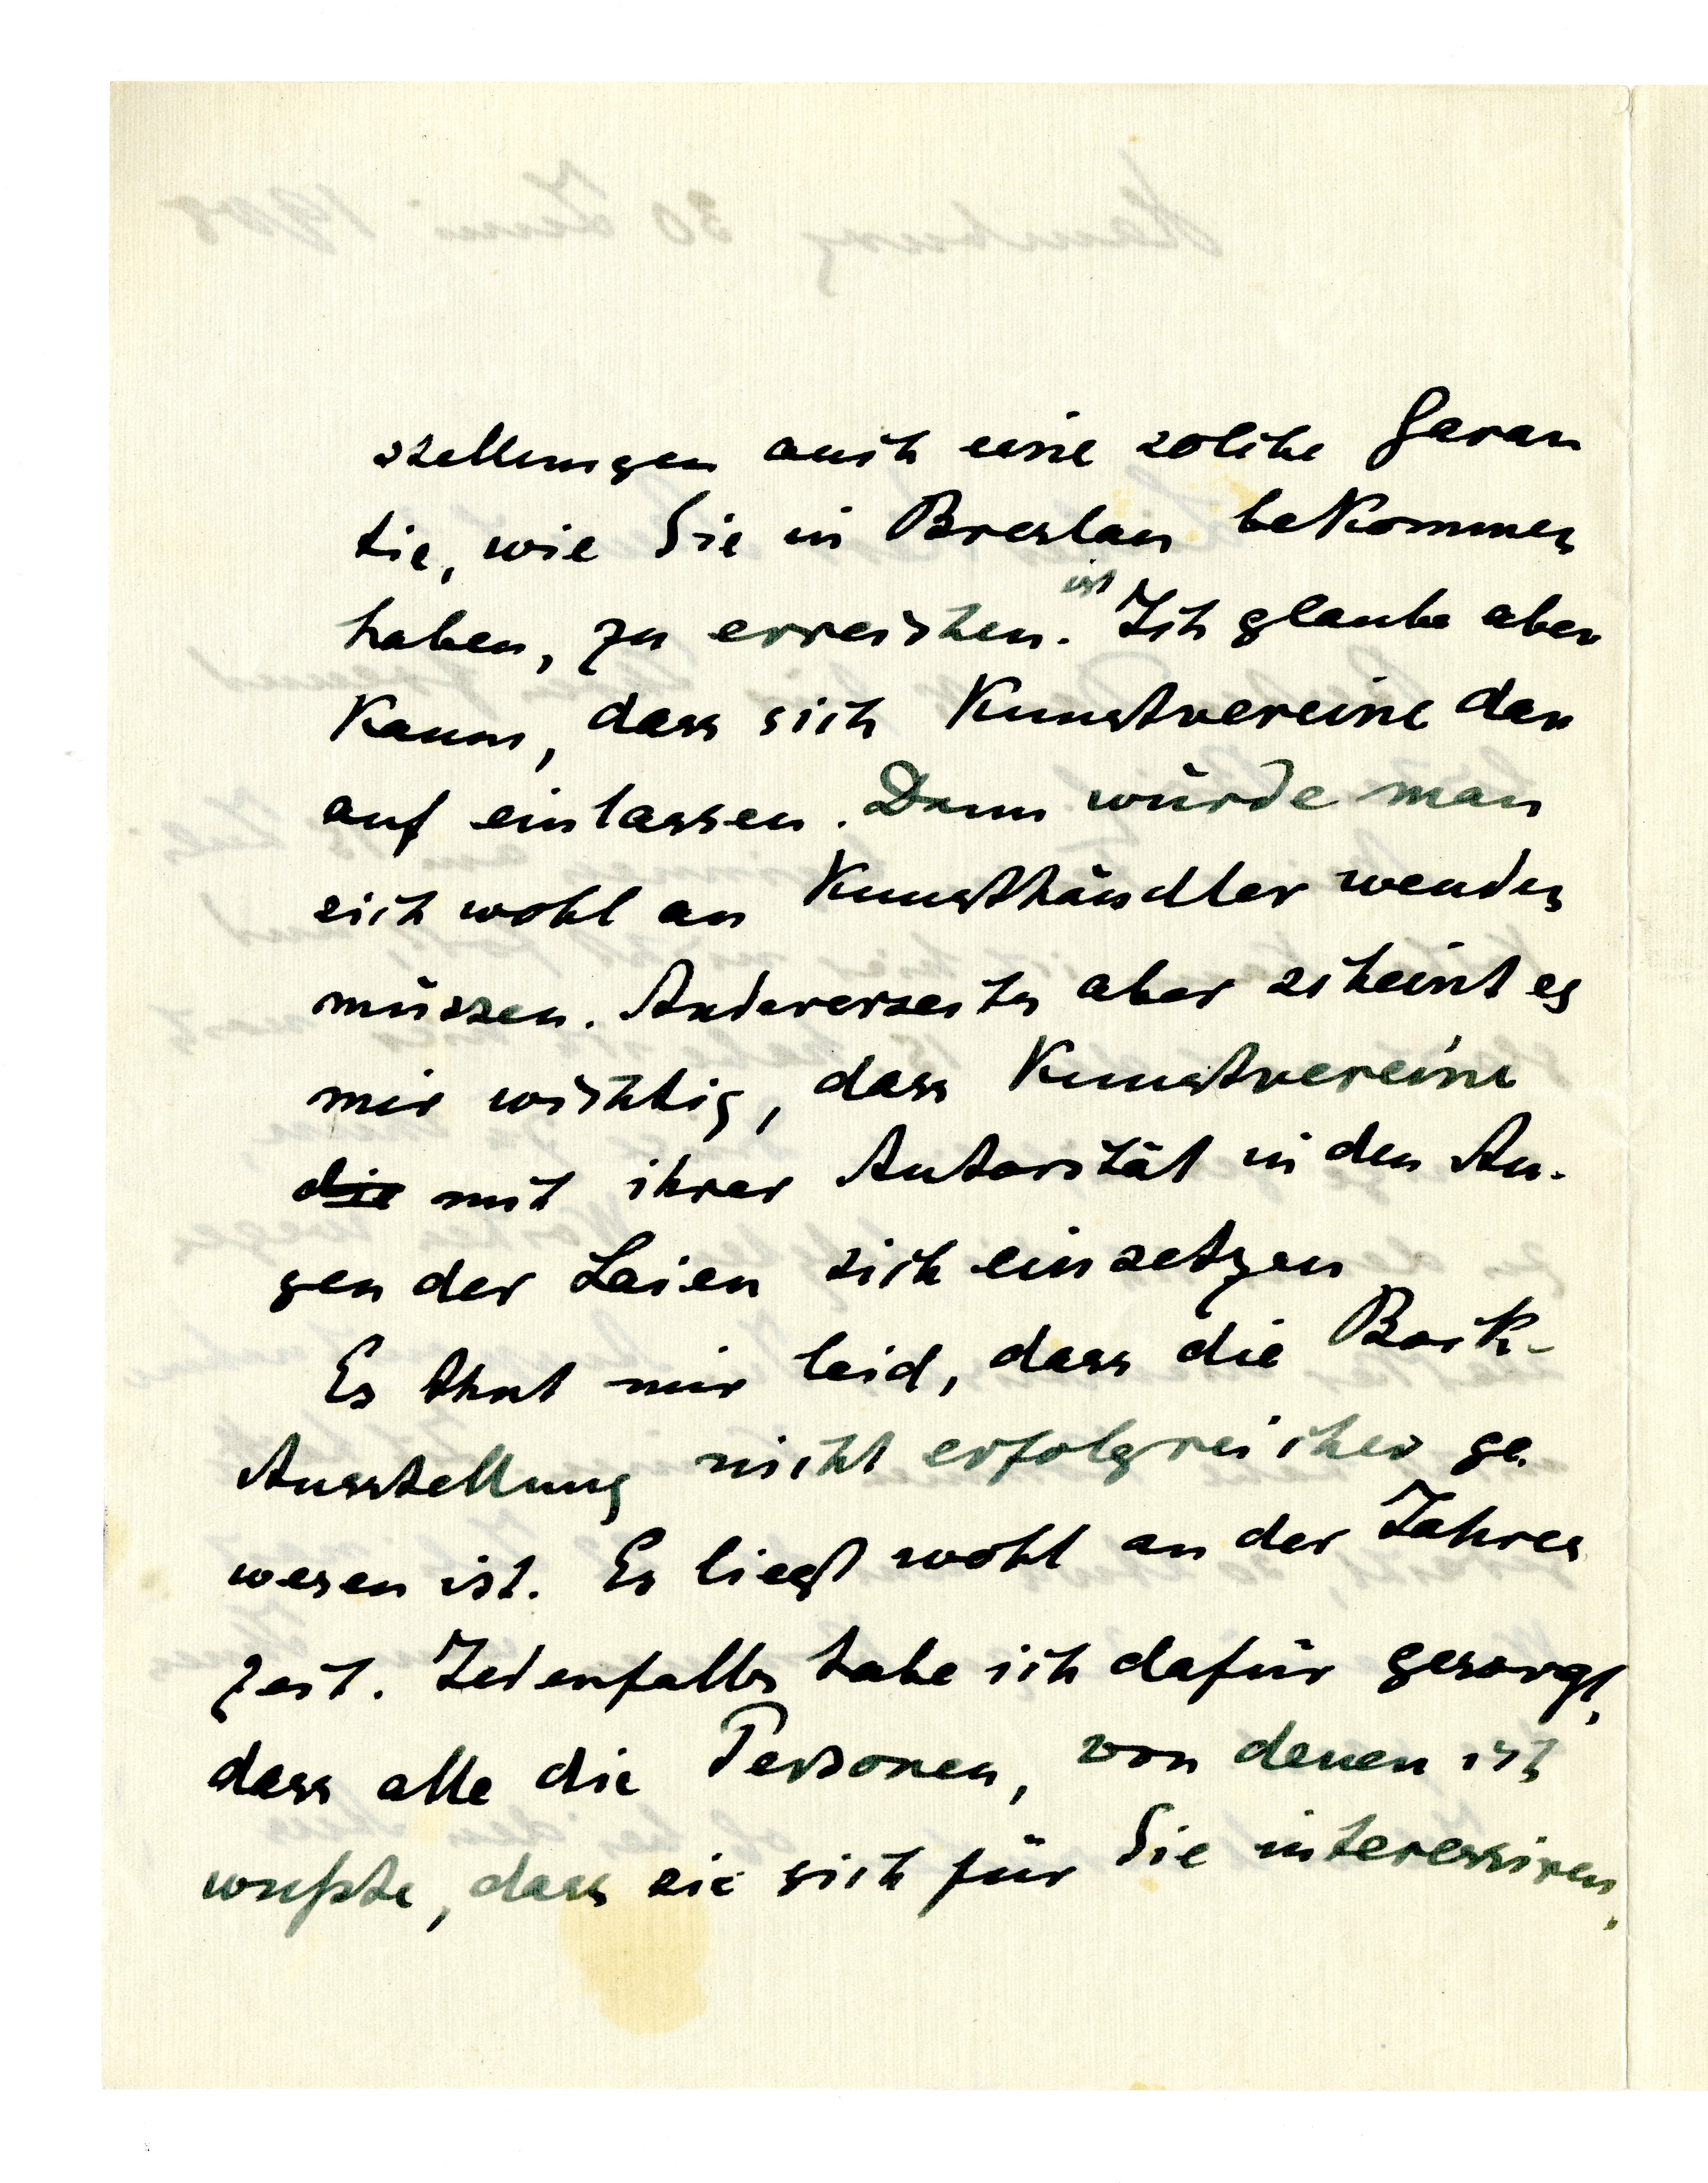 stellungen auch eine solche Garan
tie, wie Sie in Breslau bekommen
haben, zu erreichen ist. Ich glaube aber
kaum, dass sich Kunstvereine dar
auf einlassen. Dann würde man
sich wohl an Kunsthändler wenden
müssen. Andererseits aber scheint es
mir wichtig, dass Kunstvereine
die mit ihrer Autorität in den Au-
gen der Laien sich einsetzen
Es thut mir leid, dass die Bock-
Ausstellung nicht erfolgreicher ge-
wesen ist. Es liegt wohl an der Jahres
zeit. Jedenfalls habe ich dafür gesorgt,
dass alle die Personen, von denen ich
wußte, dass sie sich für Sie interessiren,